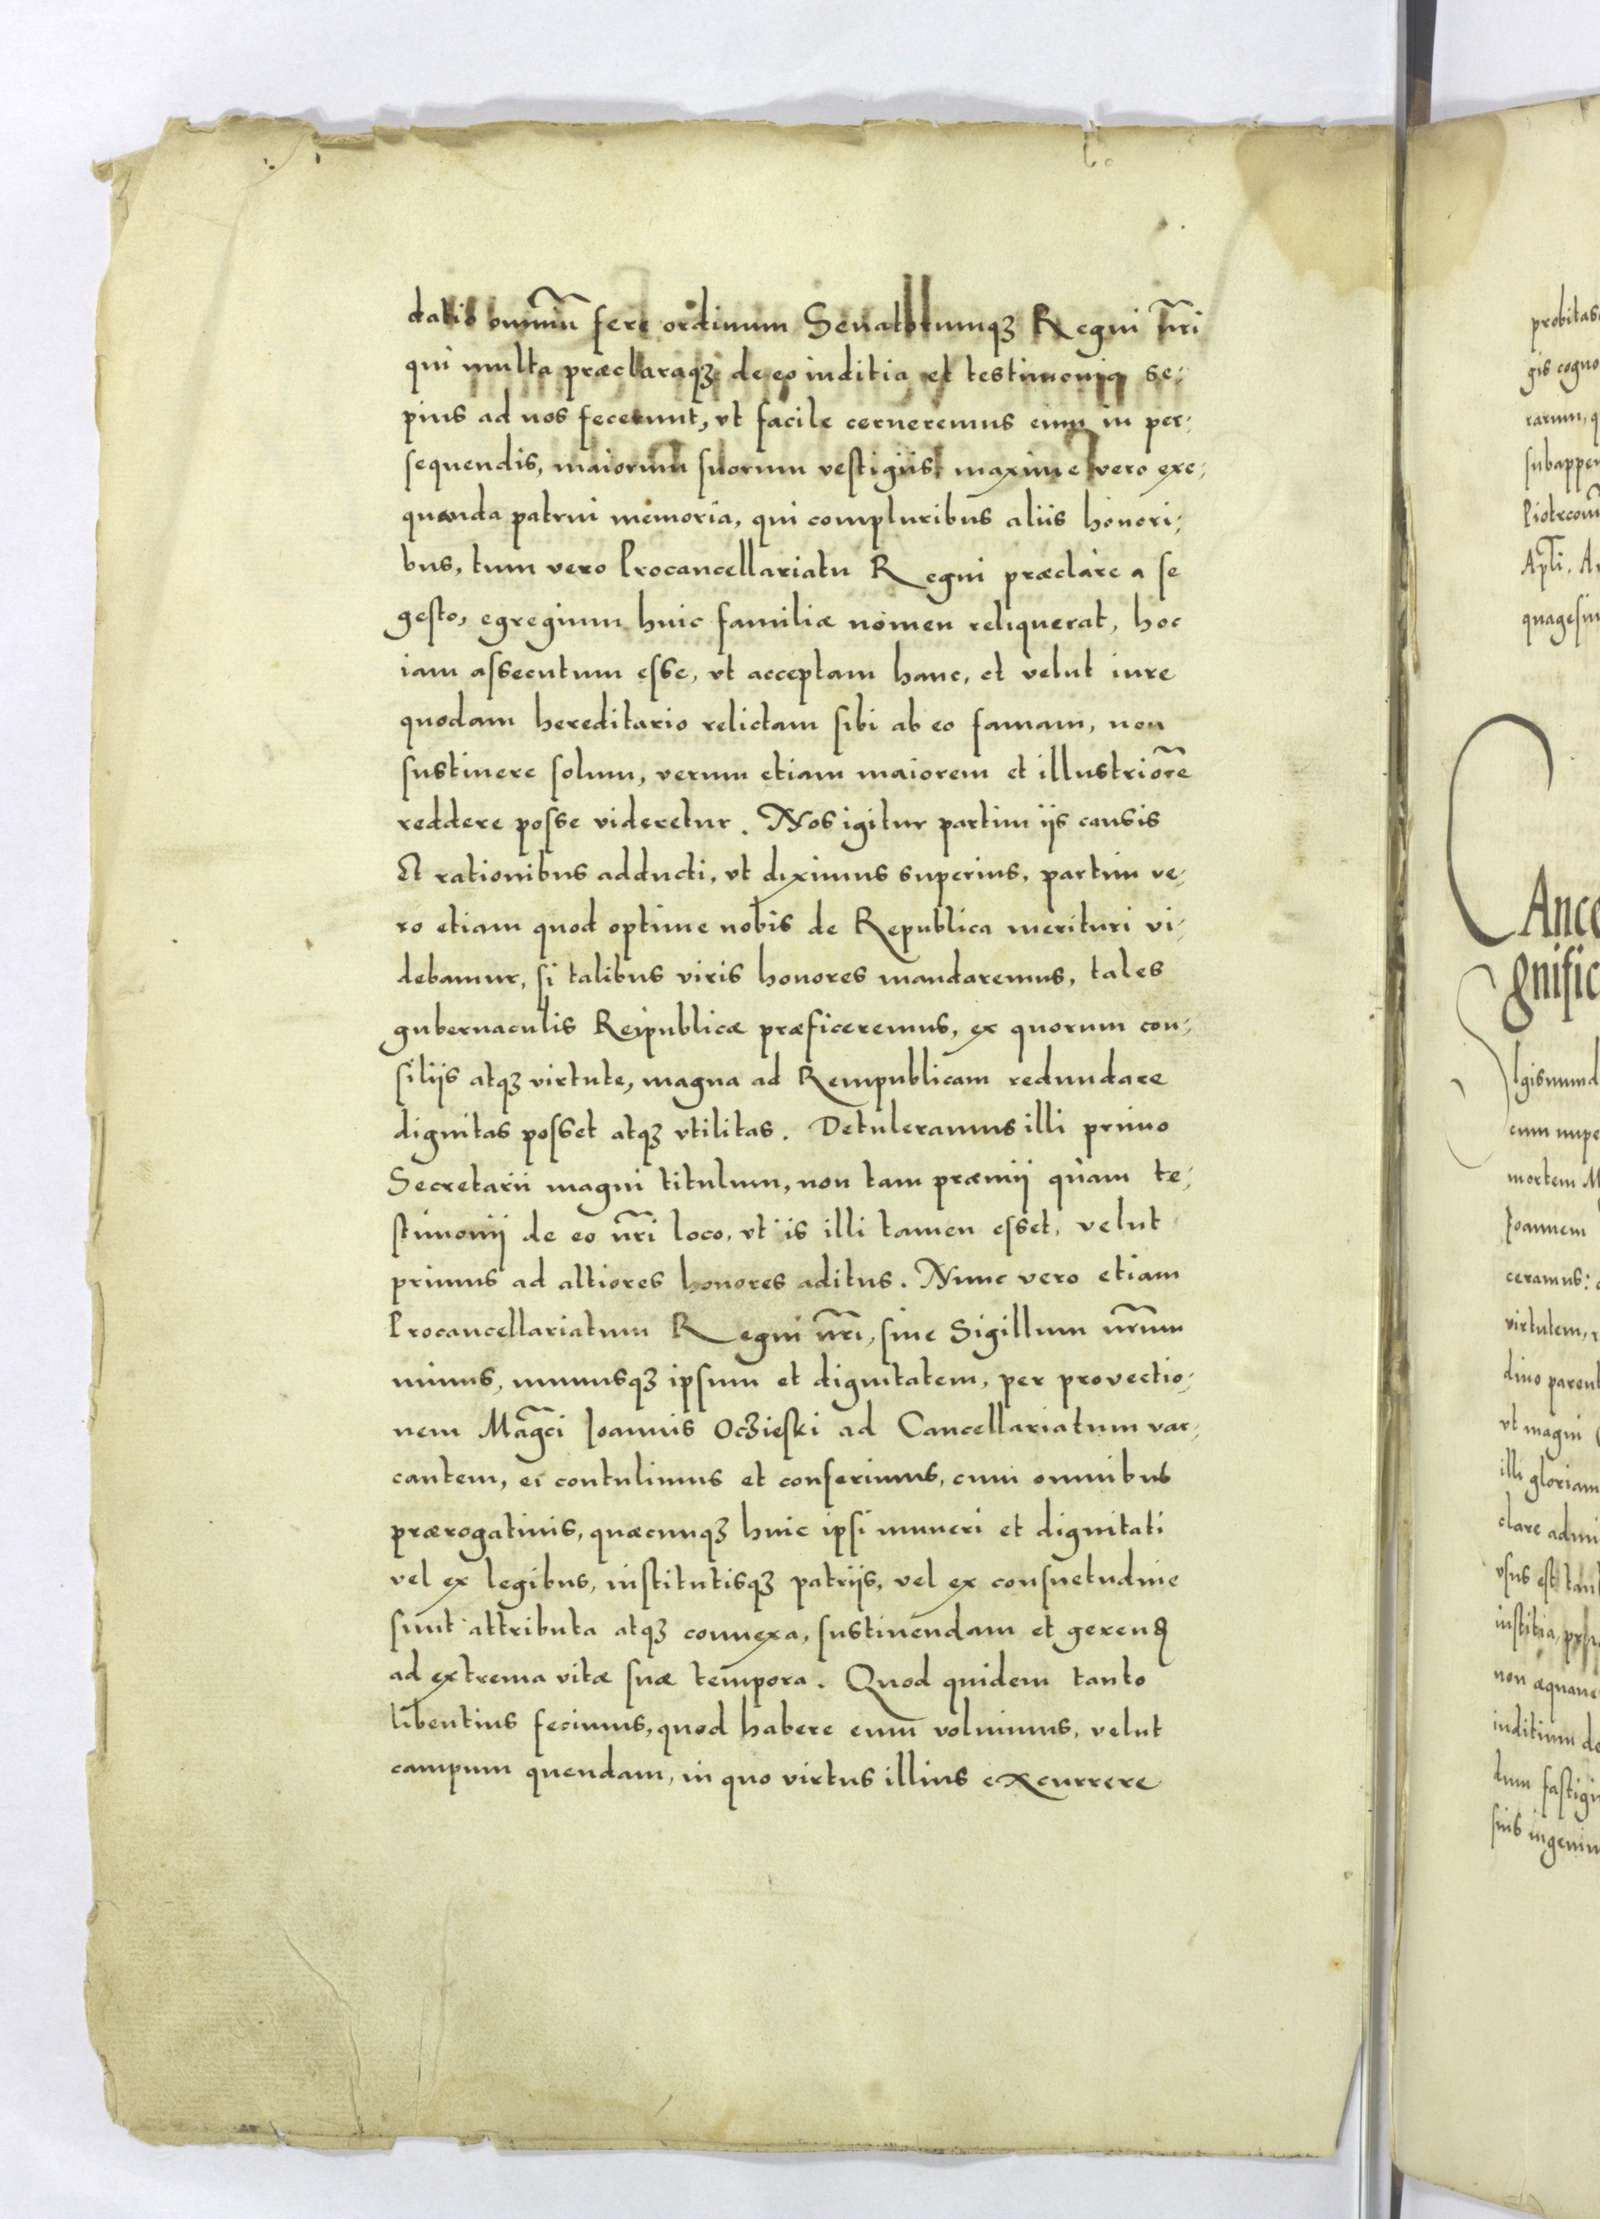 datis omniũ fere ordinum Senatorumqꝫ Regni nr̃i
qui multa præclaraqꝫ de eo inditia et testimonia se-
pius ad nos fecerunt, vt facile cerneremus eum in per-
sequendis, maiorum suorum vestigiis, maxime vero exe-
quenda patrui memoria, qui compluribus aliis honori-
bus, tum vero Procancellariatu Regni præclare a se
gesto, egregium huic familiæ nomen reliquerat, hoc
iam assecutum esse, vt acceptam hanc, et velut iure
quodam hereditario relictam sibi ab eo famam, non
sustinere solum, verum etiam maiorem et illustriorẽ
reddere posse videretur. Nos igitur partim iis causis
Et rationibus adducti, vt diximus superius, partim ve-
ro etiam quod optime nobis de Republica merituri vi-
debamur, si talibus viris honores mandaremus, tales
gubernaculis Reipublicæ præficeremus, ex quorum con-
siliis atqꝫ virtute, magna ad Rempublicam redundare
dignitas posset atqꝫ vtilitas. Detuleramus illi primo
Secretarii magni titulum, non tam præmij quàm te-
stimonij de eo nr̃i loco, vt is illi tamen esset, velut
primus ad altiores honores aditus. Nunc vero etiam
Procancellariatum Regni nr̃i, siue Sigillum nr̃um
minus, munusqꝫ ipsum et dignitatem, per provectio-
nem Mag̃ci Joannis Oczieski ad Cancellariatum va-
cantem, ei contulimus et conferimus, cum omnibus
prærogatiuis, quæcunqꝫ huic ipsi muneri et dignitati
vel ex legibus, institutisqꝫ patriis, vel ex consuetudine
sunt attributa atqꝫ connexa, sustinendam et gerenꝺ
ad extrema vitæ suæ tempora. Quod quidem tanto
libentius fecimus, quod habere eum voluimus, velut
campum quendam, in quo virtus illius excurrere
probitas
gis cogno
rarum, q
subappen
Apl̃i. A
quagesim
Ance
gnific
Igismund
cum nupe
mortem M
Joannem
ceramus:
virtutem,
diuo parent
vt magni
illi gloriam
clare admi
vsus est tan
iustitia,
non æquane
inditium de
dum fastigi
suis ingeniu